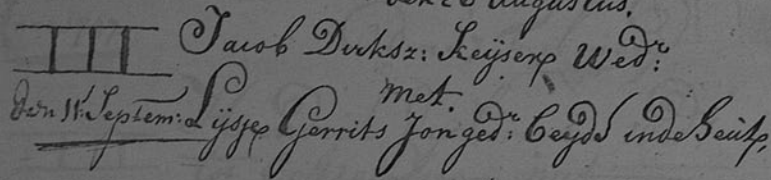 Augustus.
III Jacob Dirksz: Keÿser Wedr:
met.
den 11 Septem: Lÿsje Gerrits Jongedr: beÿde in de